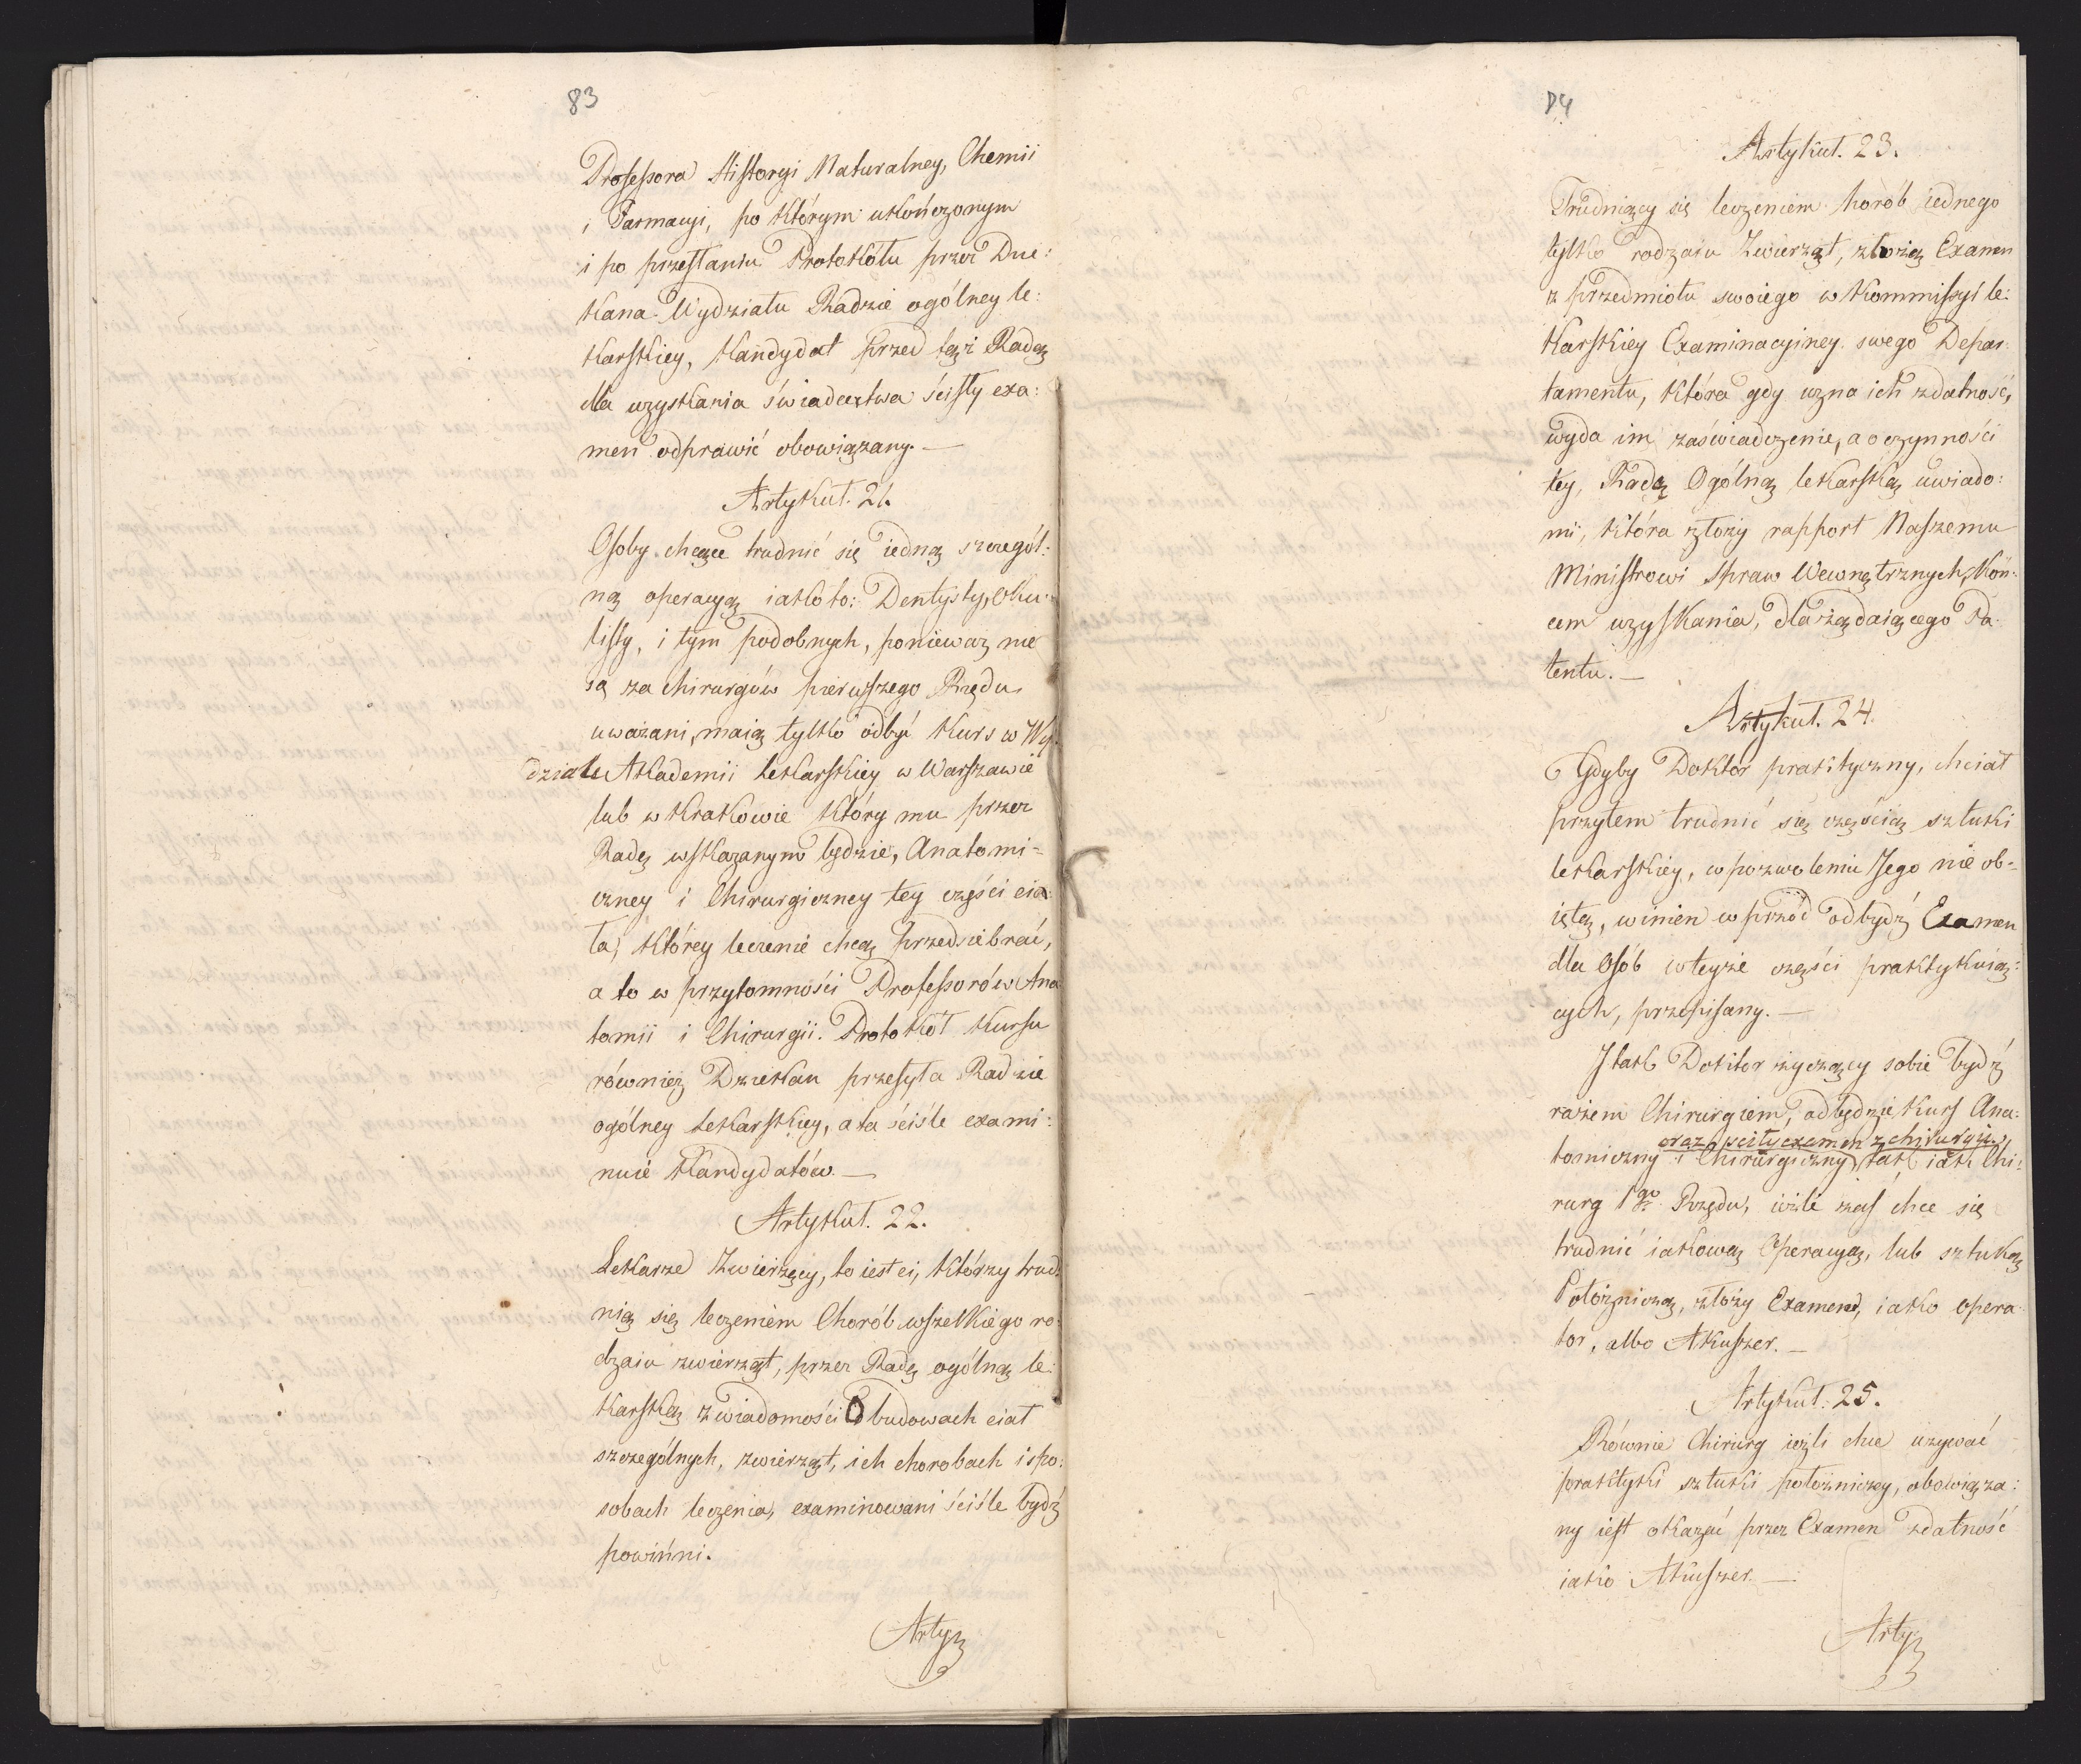 83
Professora Historyi Naturalney, Chemii
i Farmacyi, po którym ukończonym
i po przesłaniu Protokółu przez Due:
kana Wydziału Radzie ogólney le:
karskiey, Kandydat przed tęż Radą
dla uzyskania świadectwa ścisły exa:
men odprawić obowiązany. —
Artykuł. 21.
Osoby chcące trudnić się iedną szczegól:
ną operacyą iakoto: Dentysty, Oku:
listy, i tym podobnych, ponieważ nie
są za Chirurgów pierwszego Rzędu
uważani, maią tylko odbyć Kurs w Wy:
dziale Akademii Lekarskiey w Warszawie
lub w Krakowie który mu przez
Radę wskazanym będzie, Anatomi=
czney i Chirurgiczney tey części cia:
ła, którey leczenie chcą przedsiebrać,
a to w przytomności Professorów Ana
tomii i Chirurgii. Protokół Kursu
również Dziekan przesyła Radzie
ogólney Lekarskiey, a ta ściśle exami:
nuie Kandydatów. —
Artykuł. 22.
Lekarze Zwierzęcy, to iest ci, którzy trud:
nią się leczeniem Chorób wszelkiego ro:
dzaiu zwierząt, przez Radę ogólną le:
karską z wiadomości O budowach ciał
szczególnych, zwierząt, ich chorobach i spo:
sobach leczenia, examinowani ściśle bydź
powinni.
Arty
84
Artykuł. 23.
Trudniący się leczeniem horób iednego
tylko rodzaiu Zwierząt, złożą Examen
z przedmiotu swoiego w Kommissyi le:
karskiey Examinacyiney swego Depar:
tamentu, która gdy uzna ich zdatność,
wyda im zaświadczenie, a o czynności
tey, Radę Ogólną lekarską uwiado:
mi, która złoży rapport Naszemu
Ministrowi Spraw Wewnętrznych, Koń:
cem uzyskania, dla żądaiącego Pa:
tentu. —
Artykuł. 24.
Gdyby Doktor praktyczny, chciał
przytem trudnić się częścią sztuki
lekarskiey, w pozwoleniu Jego nie ob=
iętą, winien wprzód odbydź Examen
dla Osób w teyże części praktykuią:
cych, przepisany. —
Jtak Doktor życzący sobie bydź
razem Chirurgiem, odbędzie Kurs Ana:
oraz ścisły examen z chirurgii
tomiczny i Chirurgiczny, tak iak Chi:
rurg 1go Rzędu, ieżli zaś chce się
trudnić iakową Operacyą, lub sztuką
Położniczą, złoży Examen, iako opera
tor, albo Akuszer. —
Artykuł. 25.
Równie Chirurg ieżli chce używać
praktyki sztuki położniczey, obowiąza:
ny iest okazać przez Examen zdatność
iako Akuszer. —
Arty